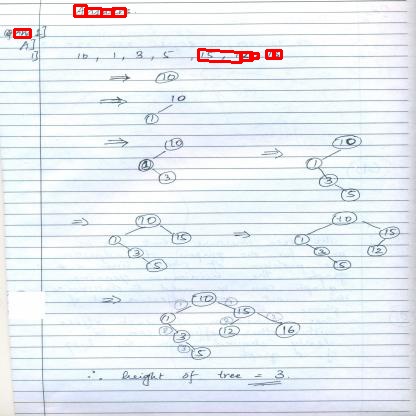 A]
1] 10, 1, 3, 5, 15, 12, 16
⇒ 10
⇒ 10
1
⇒ 10
1
3
⇒ 10
1
3
5
⇒ 10
1 15
3
5
⇒ 10
1 15
3 12
5
⇒ 10
1 15
3 12 16
5
∴ height of tree = 3.